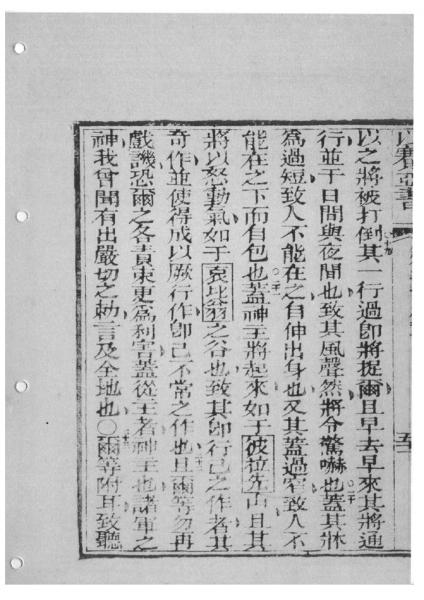 以賽亞書
以之將被打倒其一行過即將捉爾且早去早來其將通
行並于日間與夜間也致其風聲然將令驚嚇也蓋其牀
為過短致人不能在之自伸出身也又其蓋過窄致人不
能在之下而自包也蓋神主將起來如于彼拉先山且其
將以怒動氣如于哀比翁之谷也致其即行己之作者其
奇作並使得成以厥行作即己不常之作也且爾等勿再
戲譏恐爾之各責束更為利害蓋從主者神主也諸軍之
神我曾聞有出嚴切之勅言及全地也〇爾等附耳致聽